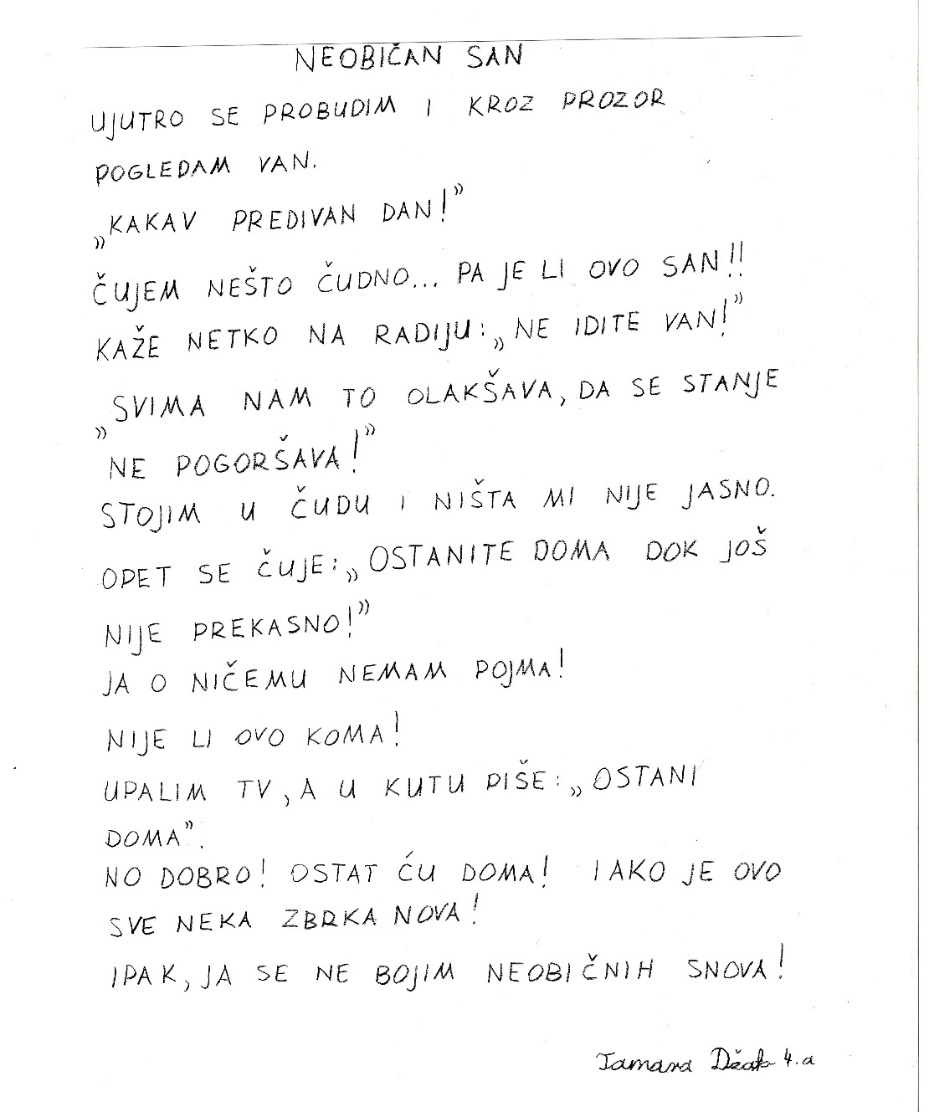 NEOBIČAN SAN
UJUTRO SE PROBUDIM I KROZ PROZOR
POGLEDAM VAN.
„KAKAV PREDIVAN DAN!”
ČUJEM NEŠTO ČUDNO... PA JE LI OVO SAN!!
KAŽE NETKO NA RADIJU: „NE IDITE VAN!”
„SVIMA NAM TO OLAKŠAVA, DA SE STANJE
NE POGORŠAVA!”
STOJIM U ČUDU I NIŠTA MI NIJE JASNO.
OPET SE ČUJE: „OSTANITE DOMA DOK JOŠ
NIJE PREKASNO!”
JA O NIČEMU NEMAM POJMA!
NIJE LI OVO KOMA!
UPALIM TV, A U KUTU PIŠE: „OSTANI
DOMA”.
NO DOBRO! OSTAT ĆU DOMA! IAKO JE OVO
SVE NEKA ZBRKA NOVA!
IPAK, JA SE NE BOJIM NEOBIČNIH SNOVA!
Tamara 4.a